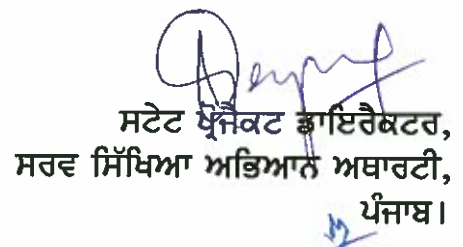 ਸਟੇਟ ਪ੍ਰੋਜੈਕਟ ਡਾਇਰੈਕਟਰ,
ਸਰਵ ਸਿੱਖਿਆ ਅਭਿਆਨ ਅਥਾਰਟੀ,
ਪੰਜਾਬ।